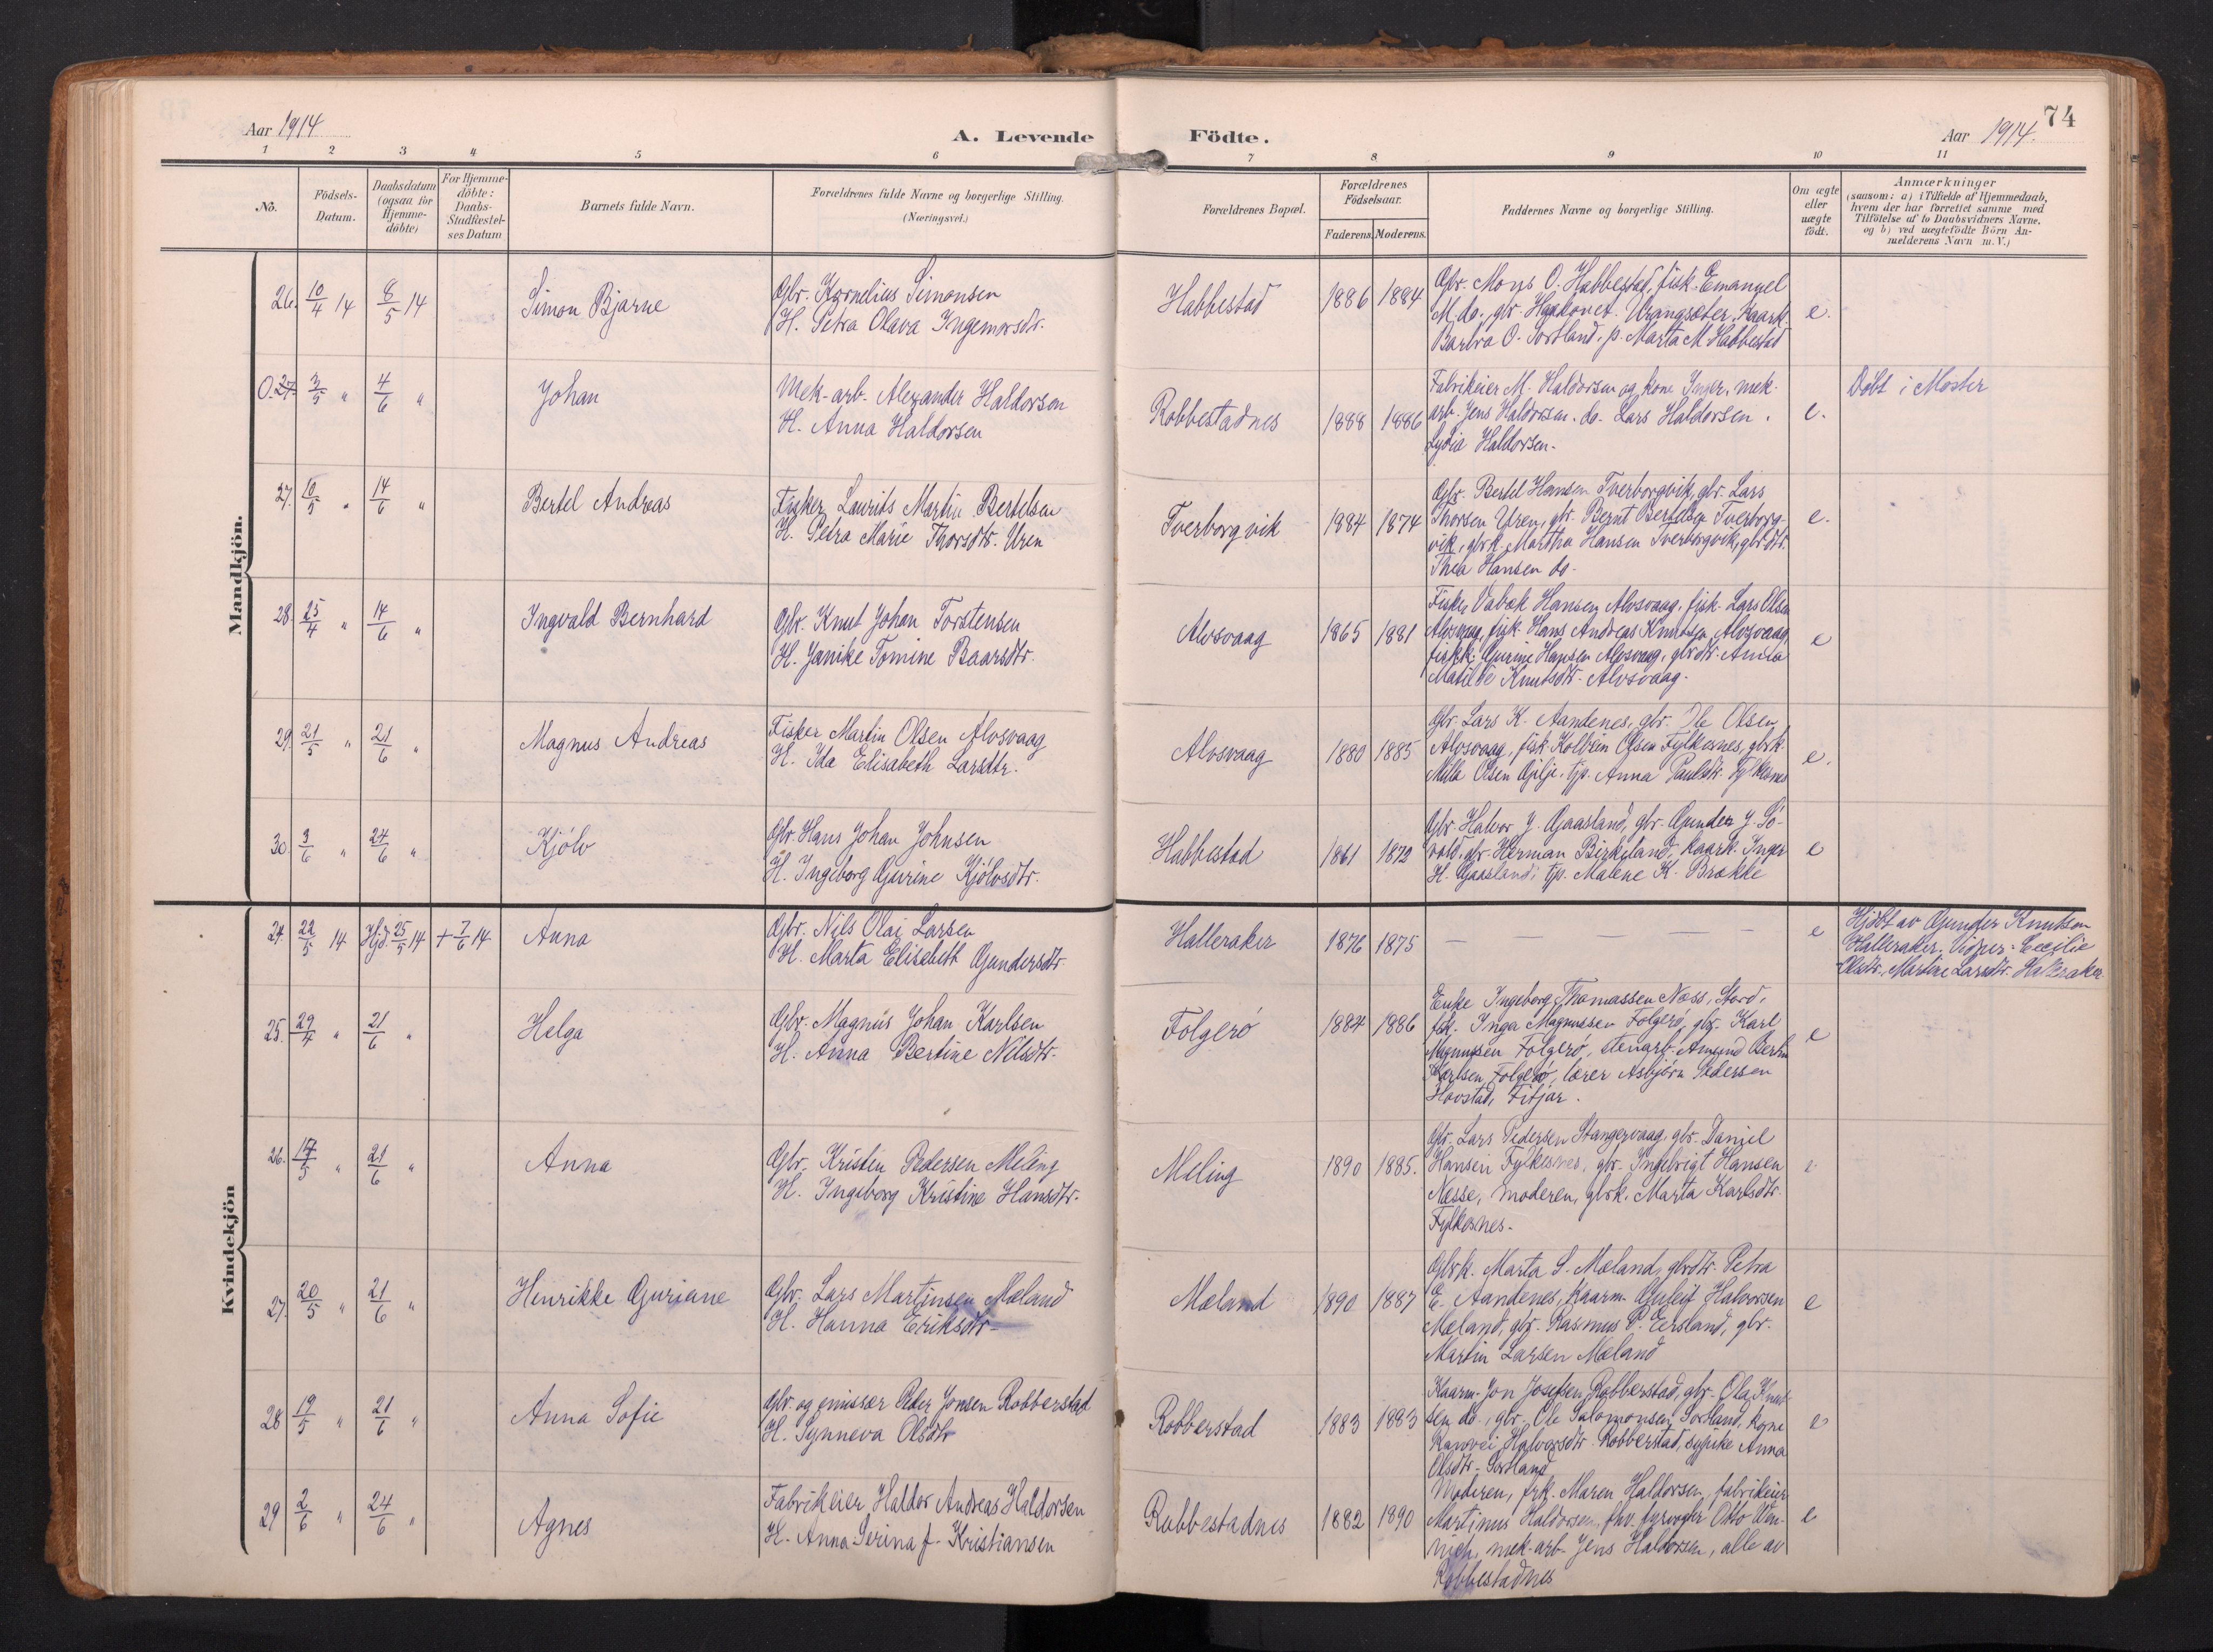 74
Aar 1914
A. Levende Födte.
Aar 1914.
1 2 3 4 5 6 7 8 9 10 11
No.
Födsels-
Datum.
Daabsdatum
(ogsaa for
Hjemme-
döbte)
For Hjemme-
döbte:
Daabs-
Stadfæstel-
ses Datum
Barnets fulde Navn.
Forældrenes fulde Navne og borgerlige Stilling.
(Næringsvei.)
Forældrenes Bopæl.
Forældrenes
Födselsaar.
Faderens. Moderens.
Faddernes Navne og borgerlige Stilling.
Om ægte
eller
uægte
födt.
Anmærkninger
(saasom: a) i Tilfælde af Hjemmedaab,
hvem der har forrettet samme med
Tilföielse af to Daabsvidners Navne.
og b) ved uægtefödte Börn An-
melderens Navn m. V.)
Mandkjön.
26. 10/4 14 8/5 14 Simon Bjarne
Gbr. Kornelius Simonsen
H. Petra Olava Ingemorsdtr.
Habbestad 1886 1884
Gbr. Mons O. Habbestad, fisk. Emanuel
M. do., gbr. Haakon Vrangsæter, kaark.
Barbra O. Sortland, p. Marta M. Habbestad
e.
0.27. 3/5 " 4/6 " Johan
Mek. arb. Alexander Haldorsen
H. Anna Haldorsen
Robbestadnes 1888 1886
Fabrikeier M. Haldorsen og kone Inger, mek.
arb. Jens Haldorsen. do. Lars Haldorsen.
Lydia Haldorsen.
e.
Döbt i Moster
27. 10/5 " 14/6 " Bertel Andreas
Fisker Laurits Martin Bertelsen
H. Petra Marie Thorsdtr. Uren
Tverborgvik 1884 1874
Gbr. Bertel Hansen Tverborgvik, gbr. Lars
Thorsen Uren, gbr. Bernt Bertelsen Tverborg-
vik, gbrk. Martha Hansen Tverborgvik, gbrdtr.
Thea Hansen do.
e.
28. 25/4 " 14/6 " Ingvald Bernhard
Gbr. Knut Johan Torstensen
H. Janike Tomine Baarsdtr.
Alvsvaag 1865 1881
Fisker Hansen Alvsvaag, fisk. Lars Olsen
Alvsvaag, fisk. Hans Andreas Knutsen, Alvsvaag
fiskk. Gurine Hansen Alvsvaag, gbrdtr. Anna
Matilde Knutsdtr. Alvsvaag.
e
29. 21/5 " 21/6 " Magnus Andreas
Fisker Martin Olsen Alvsvaag
H. Ida Elisabeth Larsdtr.
Alvsvaag 1880 1885
Gbr. Lars K. Aandenes, gbr. Ole Olsen
Alvsvaag, fisk. Kolbein Olsen Fylkesnes, gbrk.
Mila Olsen Gilje. tjp. Anna Paulsdtr. Fylkesnes
e.
30. 3/6 " 24/6 " Kjölv
Gbr. Hans Johan Johnsen
H. Ingeborg Gurine Kjölvsdtr.
Habbestad 1861 1872
Gbr. Halvor J. Gaasland, gbr. Gunder J. Sö-
vold, gbr. Herman Birkeland, kaark. Inger
H. Gaasland, tjp. Malene K. Brække
e
Kvindekjön
24. 22/5 14 Hjd. 25/5 14 + 7/6 14 Anna
Gbr. Nils Olai Larsen
H. Marta Elisabeth Gundersdtr.
Halleraker 1876 1875
— — — — —
e
Hjdöbt av Gunder Knutsen
Halleraker. Vidner: Cecilie
Olsdtr., Martine Larsdtr. Halleraker
25. 29/4 " 21/6 " Helga
Gbr. Magnus Johan Karlsen
H. Anna Bertine Nilsdtr.
Folgerö 1884 1886
Enke Ingeborg Thomassen Næss, Stord,
fsk. Inga Magnussen Folgerö, gbr. Karl
Magnussen Folgerö, stenarb. Amund Bertin
Karlsen Folgerö, lærer Asbjörn Pedersen
Havstad, Fitjar.
e
26. 17/5 " 21/6 " Anna
Gbr. Kristen Pedersen Meling
H. Ingeborg Kristine Hansdtr.
Meling 1890 1885.
Gbr. Lars Pedersen Stangervaag, gbr. Daniel
Hansen Fylkesnes, gbr. Ingebrigt Hansen
Næsse, moderen, gbrk. Marta Karlsdtr.
Fylkesnes.
e
27. 20/5 " 21/6 " Henrikke Guriane
Gbr. Lars Martinsen Mæland
H. Hanna Eriksdtr.
Mæland 1890 1887
Gbrk. Marta S. Mæland, gbrdtr. Petra
E. Aandenes, kaarm. Guleif Halvorsen
Mæland, gbr. Rasmus P. Eersland, gbr.
Martin Larsen Mæland
e
28 19/5 " 21/6 " Anna Sofie
Gbr. og emissær Peder Jonsen Robberstad
H. Synneva Olsdtr
Robberstad 1883 1883
Kaarm. Jon Josefsen Robberstad, gbr. Ola Knut-
sen do., gbr. Ole Salomonsen Sortland, kone
Ranvei Halvorsdtr. Robberstad, sypike Anna
Olsdtr. Sortland
e
29 2/6 " 24/6 " Agnes
Fabrikeier Haldor Andreas Haldorsen
H. Anna Serina f. Kristiansen
Rubbestadnes 1882 1890
Moderen, frk. Maren Haldorsen, fabrikeier
Martinus Haldorsen, fhv. fyrvogter Otto Wen-
nich, mek. arb. Jens Haldorsen, alle av
Robbestadnes
e